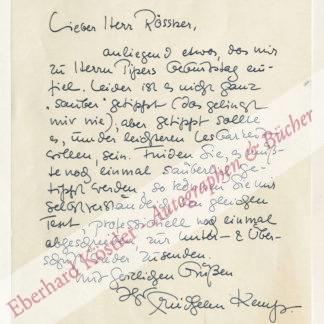 Lieber Herr Rössner,
anliegend etwas, das mir
zu Herrn Pipers Geburtstag ein-
fiel. Leider ist es nicht ganz
"sauber" getippt (das gelingt
mir nie), aber getippt sollte
es, um der leichteren Lesbarkeit
willen, sein. Finden Sie, es müß-
te noch einmal sauber ge-
tippt werden, so können Sie mir
selbstverständlich den gleichen
Text, professionell noch einmal
abgeschrieben zur Unter- & Über-
schrift wieder zusenden.
Mit herzlichen Grüßen
Ihr Friedhelm Kemp.
Eberhard Köstler, Autographen & Bücher